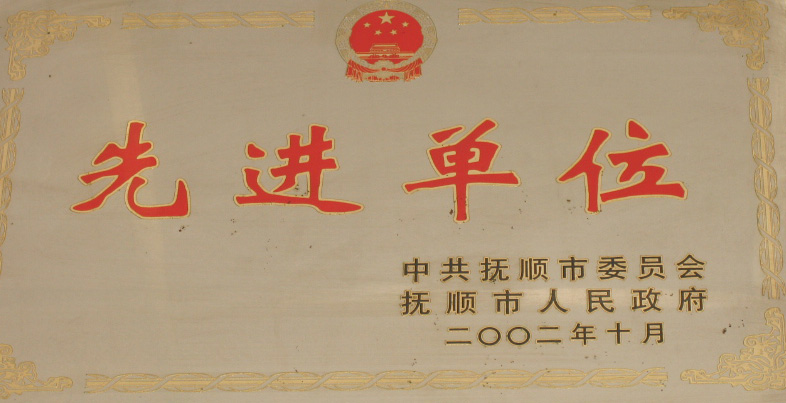 先进单位
中共抚顺市委员会
抚顺市人民政府
二〇〇二年十月